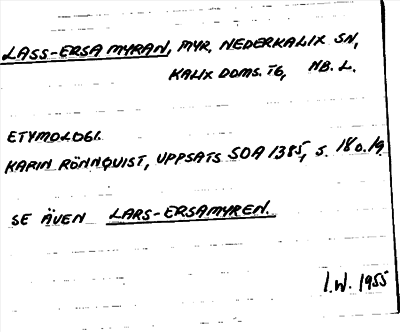 LASS-ERSA MYRAN, MYR, NEDERKALIX SN,
KALIX DOMS. TG, NB. L.
ETYMOLOGI.
KARIN RÖNNQUIST, UPPSATS SOA 1385, S. 18 o. 19.
SE ÄVEN LARS-ERSAMYREN.
I.W. 1955